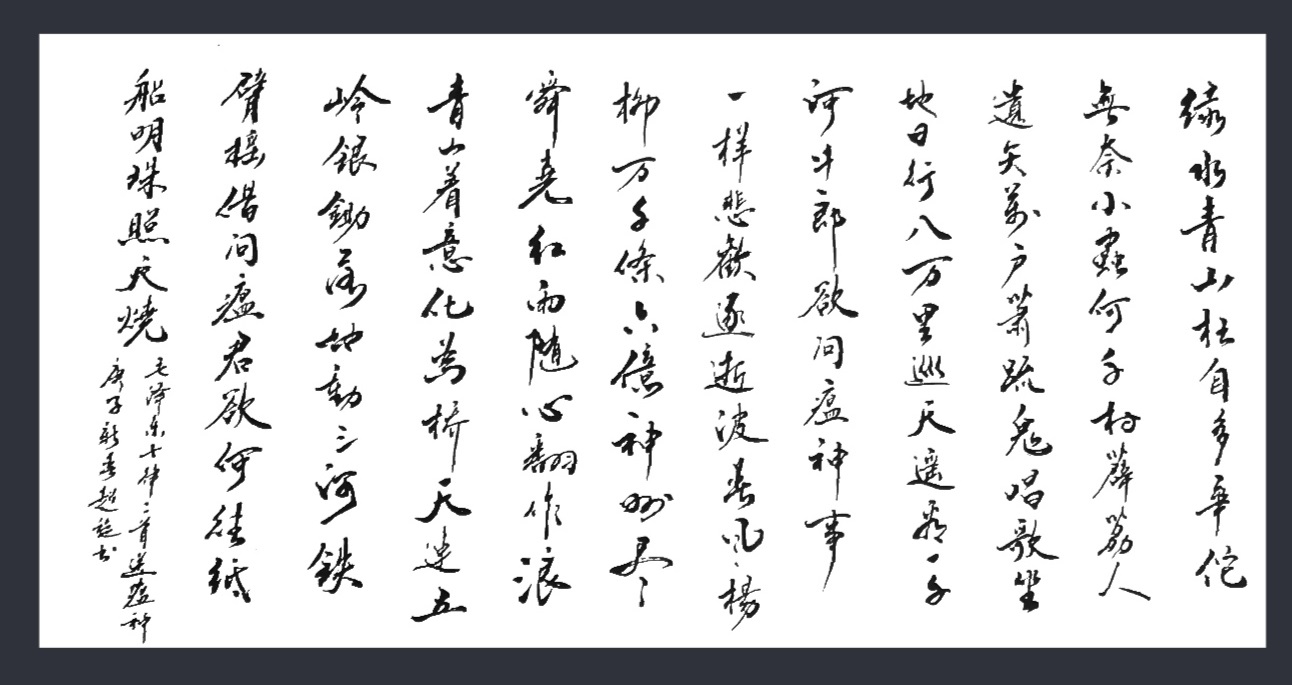 綠水青山枉自多華佗
無奈小蟲何千村薜荔人
遺矢萬戶蕭疏鬼唱歌坐
地日行八万里巡天遥看一千
河牛郎欲问瘟神事
一样悲歡逐逝波春风楊
柳万千條六億神州尽
舜尭红雨随心翻作浪
青山着意化為桥天连五
岭银鋤落地動三河鉄
臂摇借问瘟君欲何往紙
船明珠照天燒
毛泽东七律二首送瘟神
庚子新春超